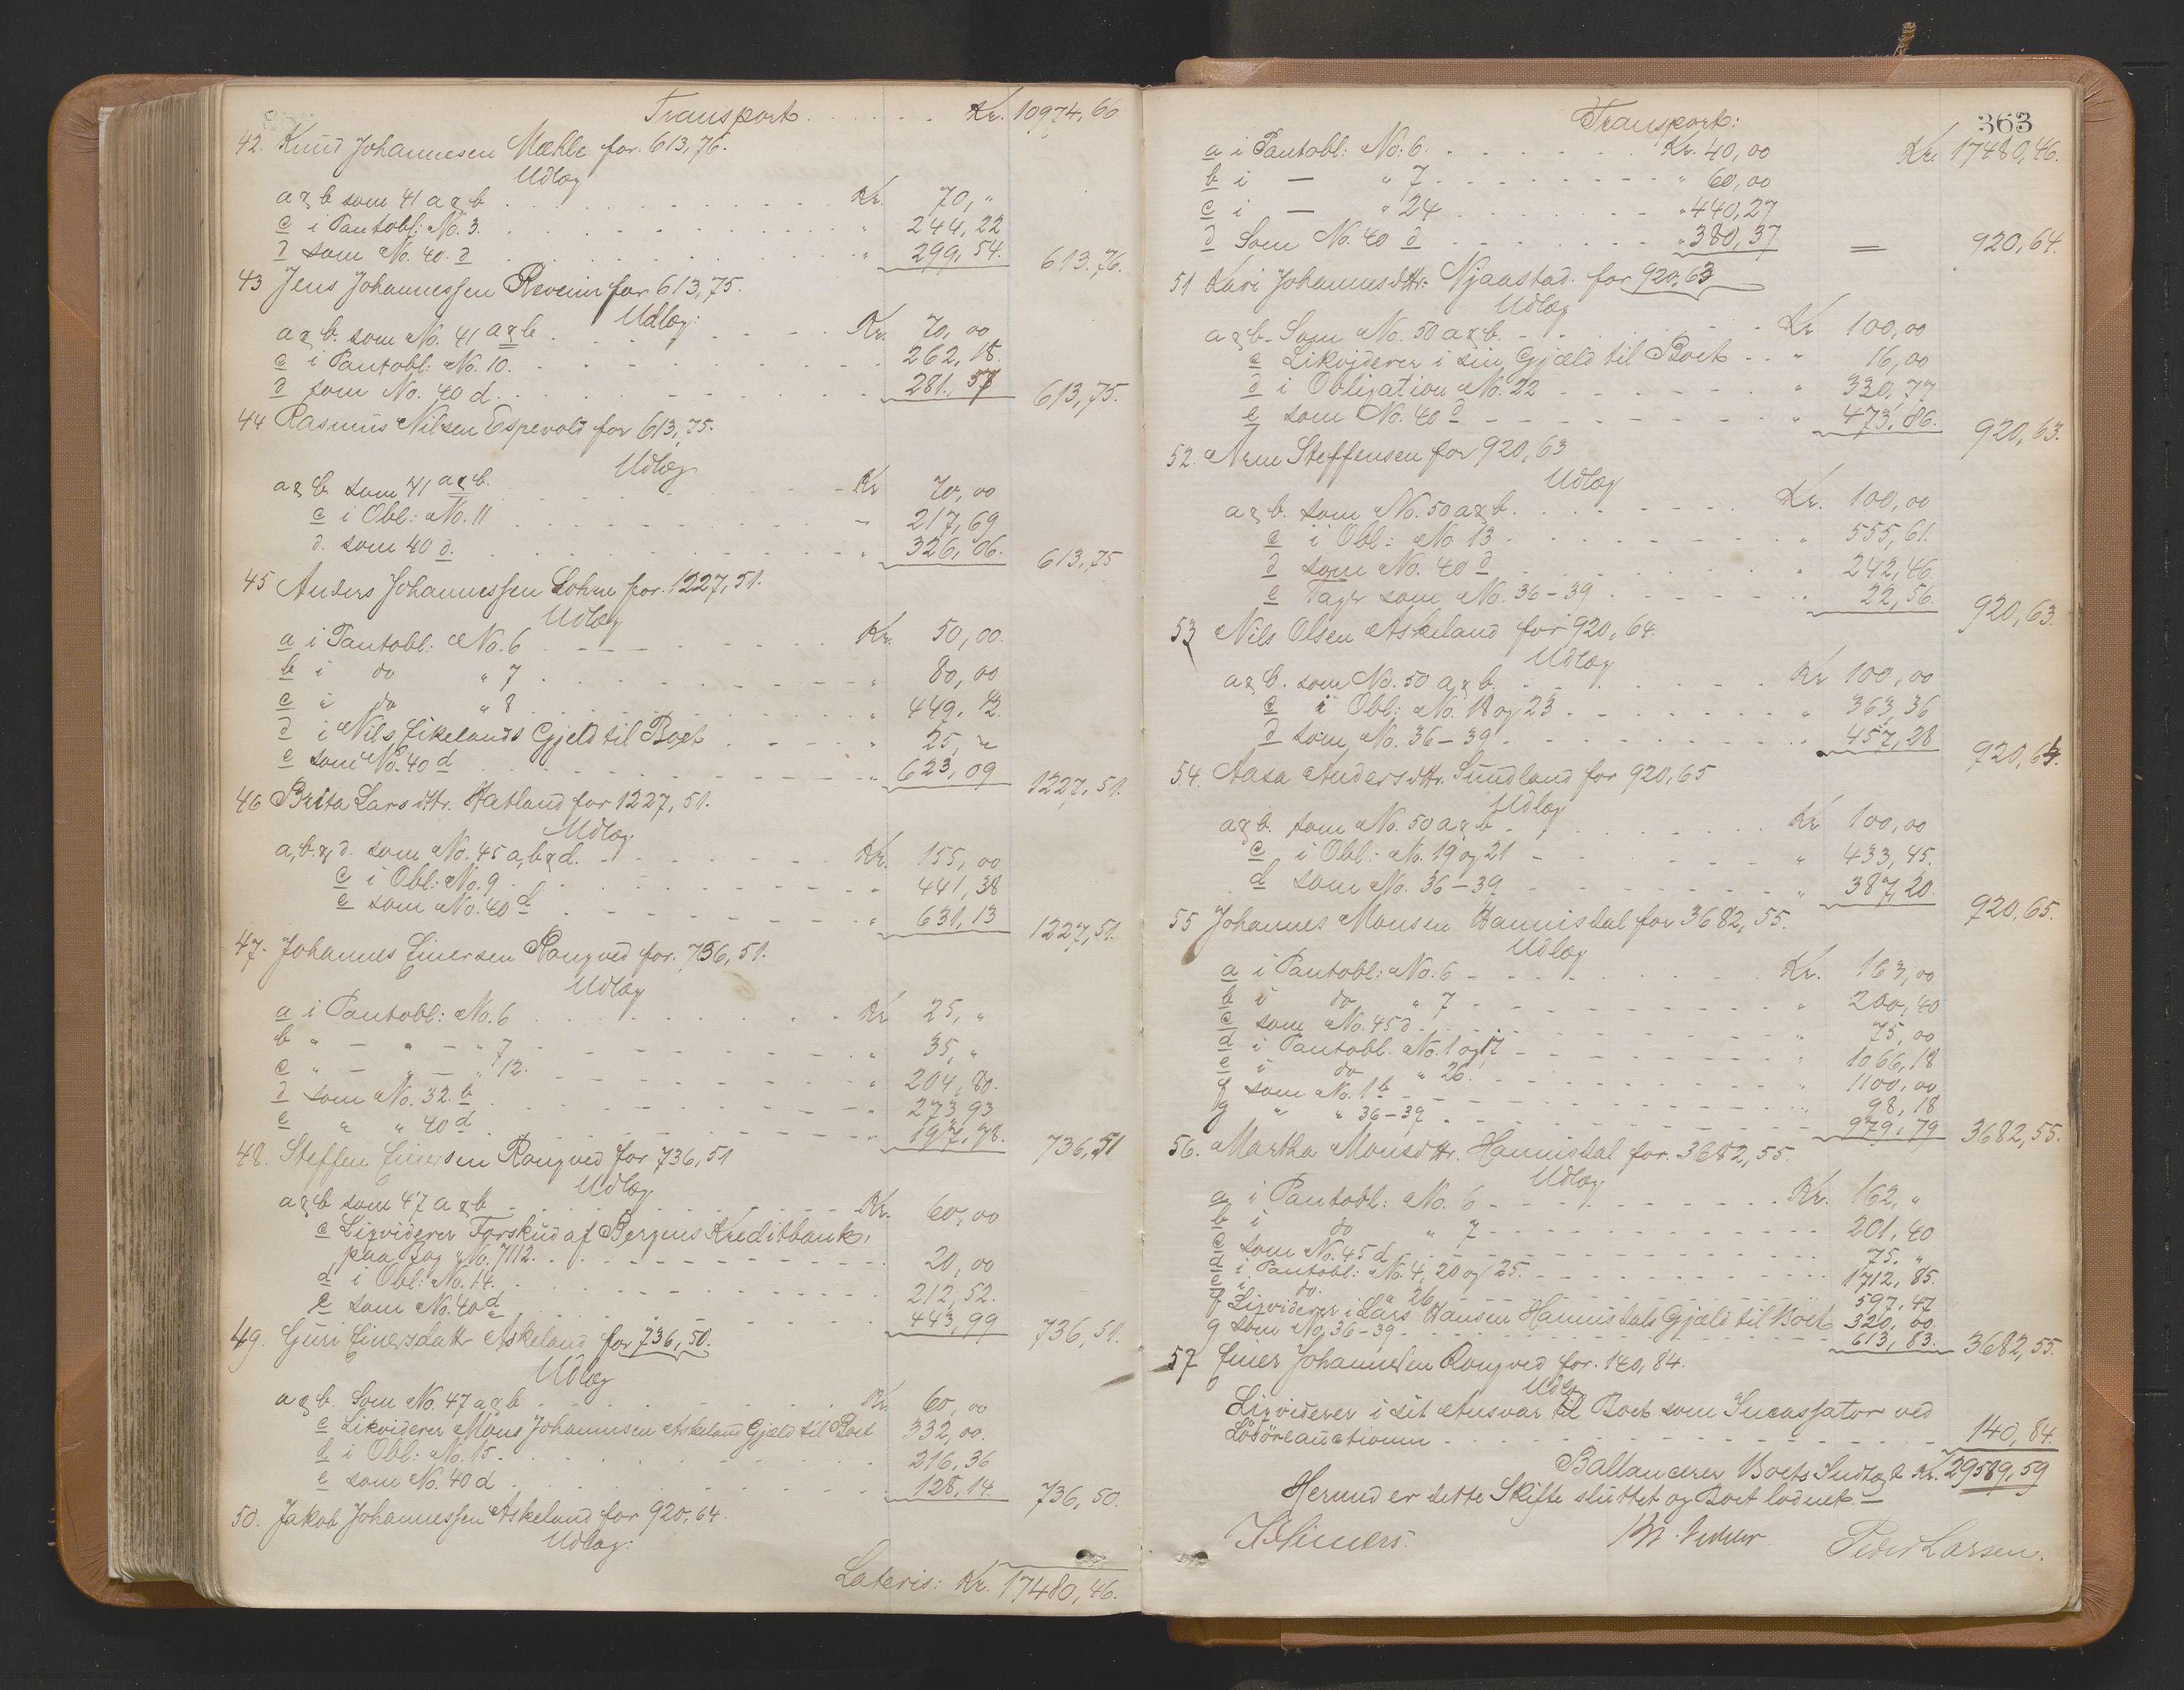 Transport . . . . . . Kr. 10974,66
42. Knud Johannesen Mæhle for 613,76.
Udlæg
a & b som 41 a & b . . . Kr. 70,"
c i Pantobl: No. 3. . . . " 244,22
d som No. 40. d . . . " 299,54. 613,76.
43 Jens Johannessen Reveim for 613,75.
Udlæg:
a & b. som No. 41 a & b . . . Kr. 70,00
c i Pantobl: No. 10. . . . 262,18.
d som No. 40 d. . . . 281,57 613,75.
44 Rasmus Nilsen Espevold for 613,75.
Udlæg
a & b som 41 a & b. . . . Kr 70,00
c i Obl: No. 11 . . . " 217,69
d. som 40 d. . . . " 326,06. 613,75
45 Anders Johannessen Lohne for 1227,51.
Udlæg
a i Pantobl: No. 6 . . . Kr. 50,00.
b i do " 7 . . . " 80,00
c i do " 8 . . . " 449,42.
d i Nils Eikelands Gjeld til Boet . . . " 25,"
e som No. 40 d . . . " 623,09 1227,51.
46 Brita Larsdttr. Hatland for 1227,51.
Udlæg
a, b. & d. som No. 45 a, b & d. . . . Kr. 155,00
c i Obl: No. 9 . . . " 441,38
e som No. 40 d . . . " 631,13 1227,51.
47. Johannes Einersen Rongved for 736,51.
Udlæg
a i Pantobl: No. 6 . . . Kr 25,"
b " — " — " 7 . . . " 35,"
c " — " — " 12. . . . " 204,80.
d som No. 32. b . . . " 273,93
e " " 40 d . . . " 197,78. 736,51
48. Steffen Einersen Rongved for 736,51
Udlæg
a & b som 47 a & b . . . Kr. 60,00
c Liqviderer Forskud af Bergens Kreditbank,
paa Bog No. 7112. . . . 20,00
d i Obl: No. 14. . . . 212,52.
e som No. 40 d . . . 443,99 736,51.
49. Guri Einersdattr Askeland for 736,50.
Udlæg
a & b. Som No. 47 a & b . . . Kr. 60,00
c Likviderer Mons Johannsen Askeland Gjæld til Boet 332,00.
d i Obl: No. 15. . . . 216,36
e som No. 40 d . . . 128,14. 736,50.
50. Jakob Johannessen Askeland for 920,64.
Udlæg:
Lateris: Kr. 17480,46.
363
Transport:
a i Pantobl: No. 6. . . . Kr. 40,00 Kr. 17480,46.
b i — " 7. . . . " 60,00
c i — " 24 . . . " 440,27
d Som No. 40 d . . . " 380,37 = 920,64.
51 Kari Johannesdttr. Njaastad. for 920,63
Udlæg
a & b. Som No. 50 a & b. . . . Kr 100,00
c Likviderer i sin Gjæld til Boet . . " 16,00
d i Obligation No. 22 . . . " 330,77
e som No. 40 d . . . " 473,86. 920,63.
52. Arne Steffensen for 920,63
Udlæg
a & b. som No. 50 a & b. . . . Kr. 100,00
c i Obl: No 13 . . . " 555,61.
d som No. 40 d . . . " 242,46.
e Tager som No. 36-39 . . . " 22,56. 920,63.
53 Nils Olsen Askeland for 920,64.
Udlæg
a & b. som No. 50 a & b. . . . Kr 100,00
c i Obl: No. 18 og 23 . . . " 363,36
d som No. 36-39 . . . " 457,28 920,64.
54. Aasa Andersdttr. Sundland for 920,65
Udlæg
a & b. som No. 50 a & b . . . Kr 100,00
c i Obl: No. 19 og 21 . . . " 433,45.
d som No. 36-39 . . . " 387,20. 920,65.
55 Johannes Monsen Hannisdal for 3682,55.
Udlæg
a i Pantobl: No. 6 . . . Kr. 163,00
b i do " 7 . . . " 200,40
c som No. 45 d . . . " 75,00
d i Pantobl. No. 1 og 17 . . . " 1066,18
e i do " 26. . . . " 1100,00
f som No. 1 b . . . " 98,18
g " " 36-39 . . . 979,79 3682,55.
56. Martha Monsdttr. Hannisdal for 3682,55.
Udlæg
a i Pantobl: No. 6 . . . Kr. 162,"
b i do " 7 . . . 201,40
c som No. 45 d . . . 75,"
d i Pantobl: No. 4, 20 og 25. . . . 1712,85.
e i do. " 26 . . . 597,47
f Liqviderer i Lars Hansen Hannisdals Gjæld til Boet 320,00.
g som No. 36-39 . . . 613,83. 3682,55.
57 Einer Johannesen Rongved for 140,84.
Udlæg
Liqviderer i sit Ansvar til Boet som Incassator ved
Lösöreauctionen . . . 140,84.
Ballancerer Boets Indtægt Kr. 29589,59
Hermed er dette Skifte sluttet og Boet lodnet. —
Peder Larsen.